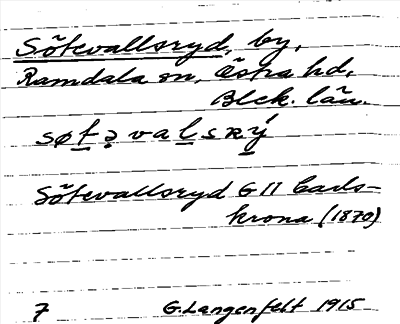 Sötevallsryd, by,
Ramdala sn, Östra hd,
Blek. län.
søt̲ə̣val̲sʀý̲
Sötevallsryd G II Carls-
krona (1870)
7 G. Langenfelt 1915